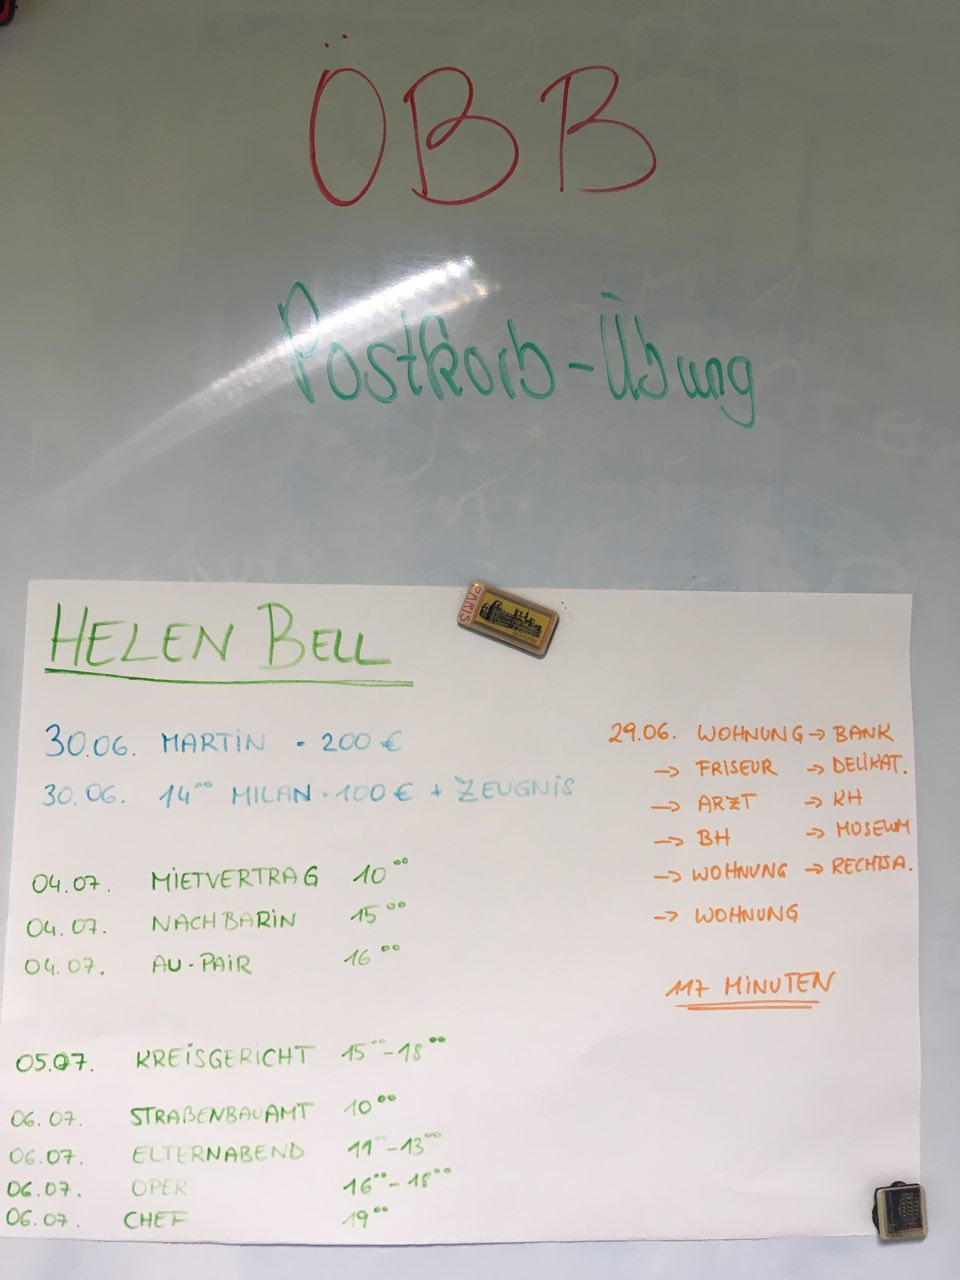 ÖBB
Postkorb-Übung
PARIS
HELEN BELL
30.06. MARTIN - 200 €
30.06. 14°° MILAN - 100 € + ZEUGNIS
04.07. MIETVERTRAG 10°°
04.07. NACHBARIN 15°°
04.07. AU-PAIR 16°°
05.07. KREISGERICHT 15°°-18°°
06.07. STRAßENBAUAMT 10°°
06.07. ELTERNABEND 11°°-13°°
06.07. OPER 16°°-18°°
06.07. CHEF 19°°
29.06. WOHNUNG → BANK
→ FRISEUR → DELIKAT.
→ ARZT → KH
→ BH → MUSEUM
→ WOHNUNG → RECHTSA.
→ WOHNUNG
117 MINUTEN